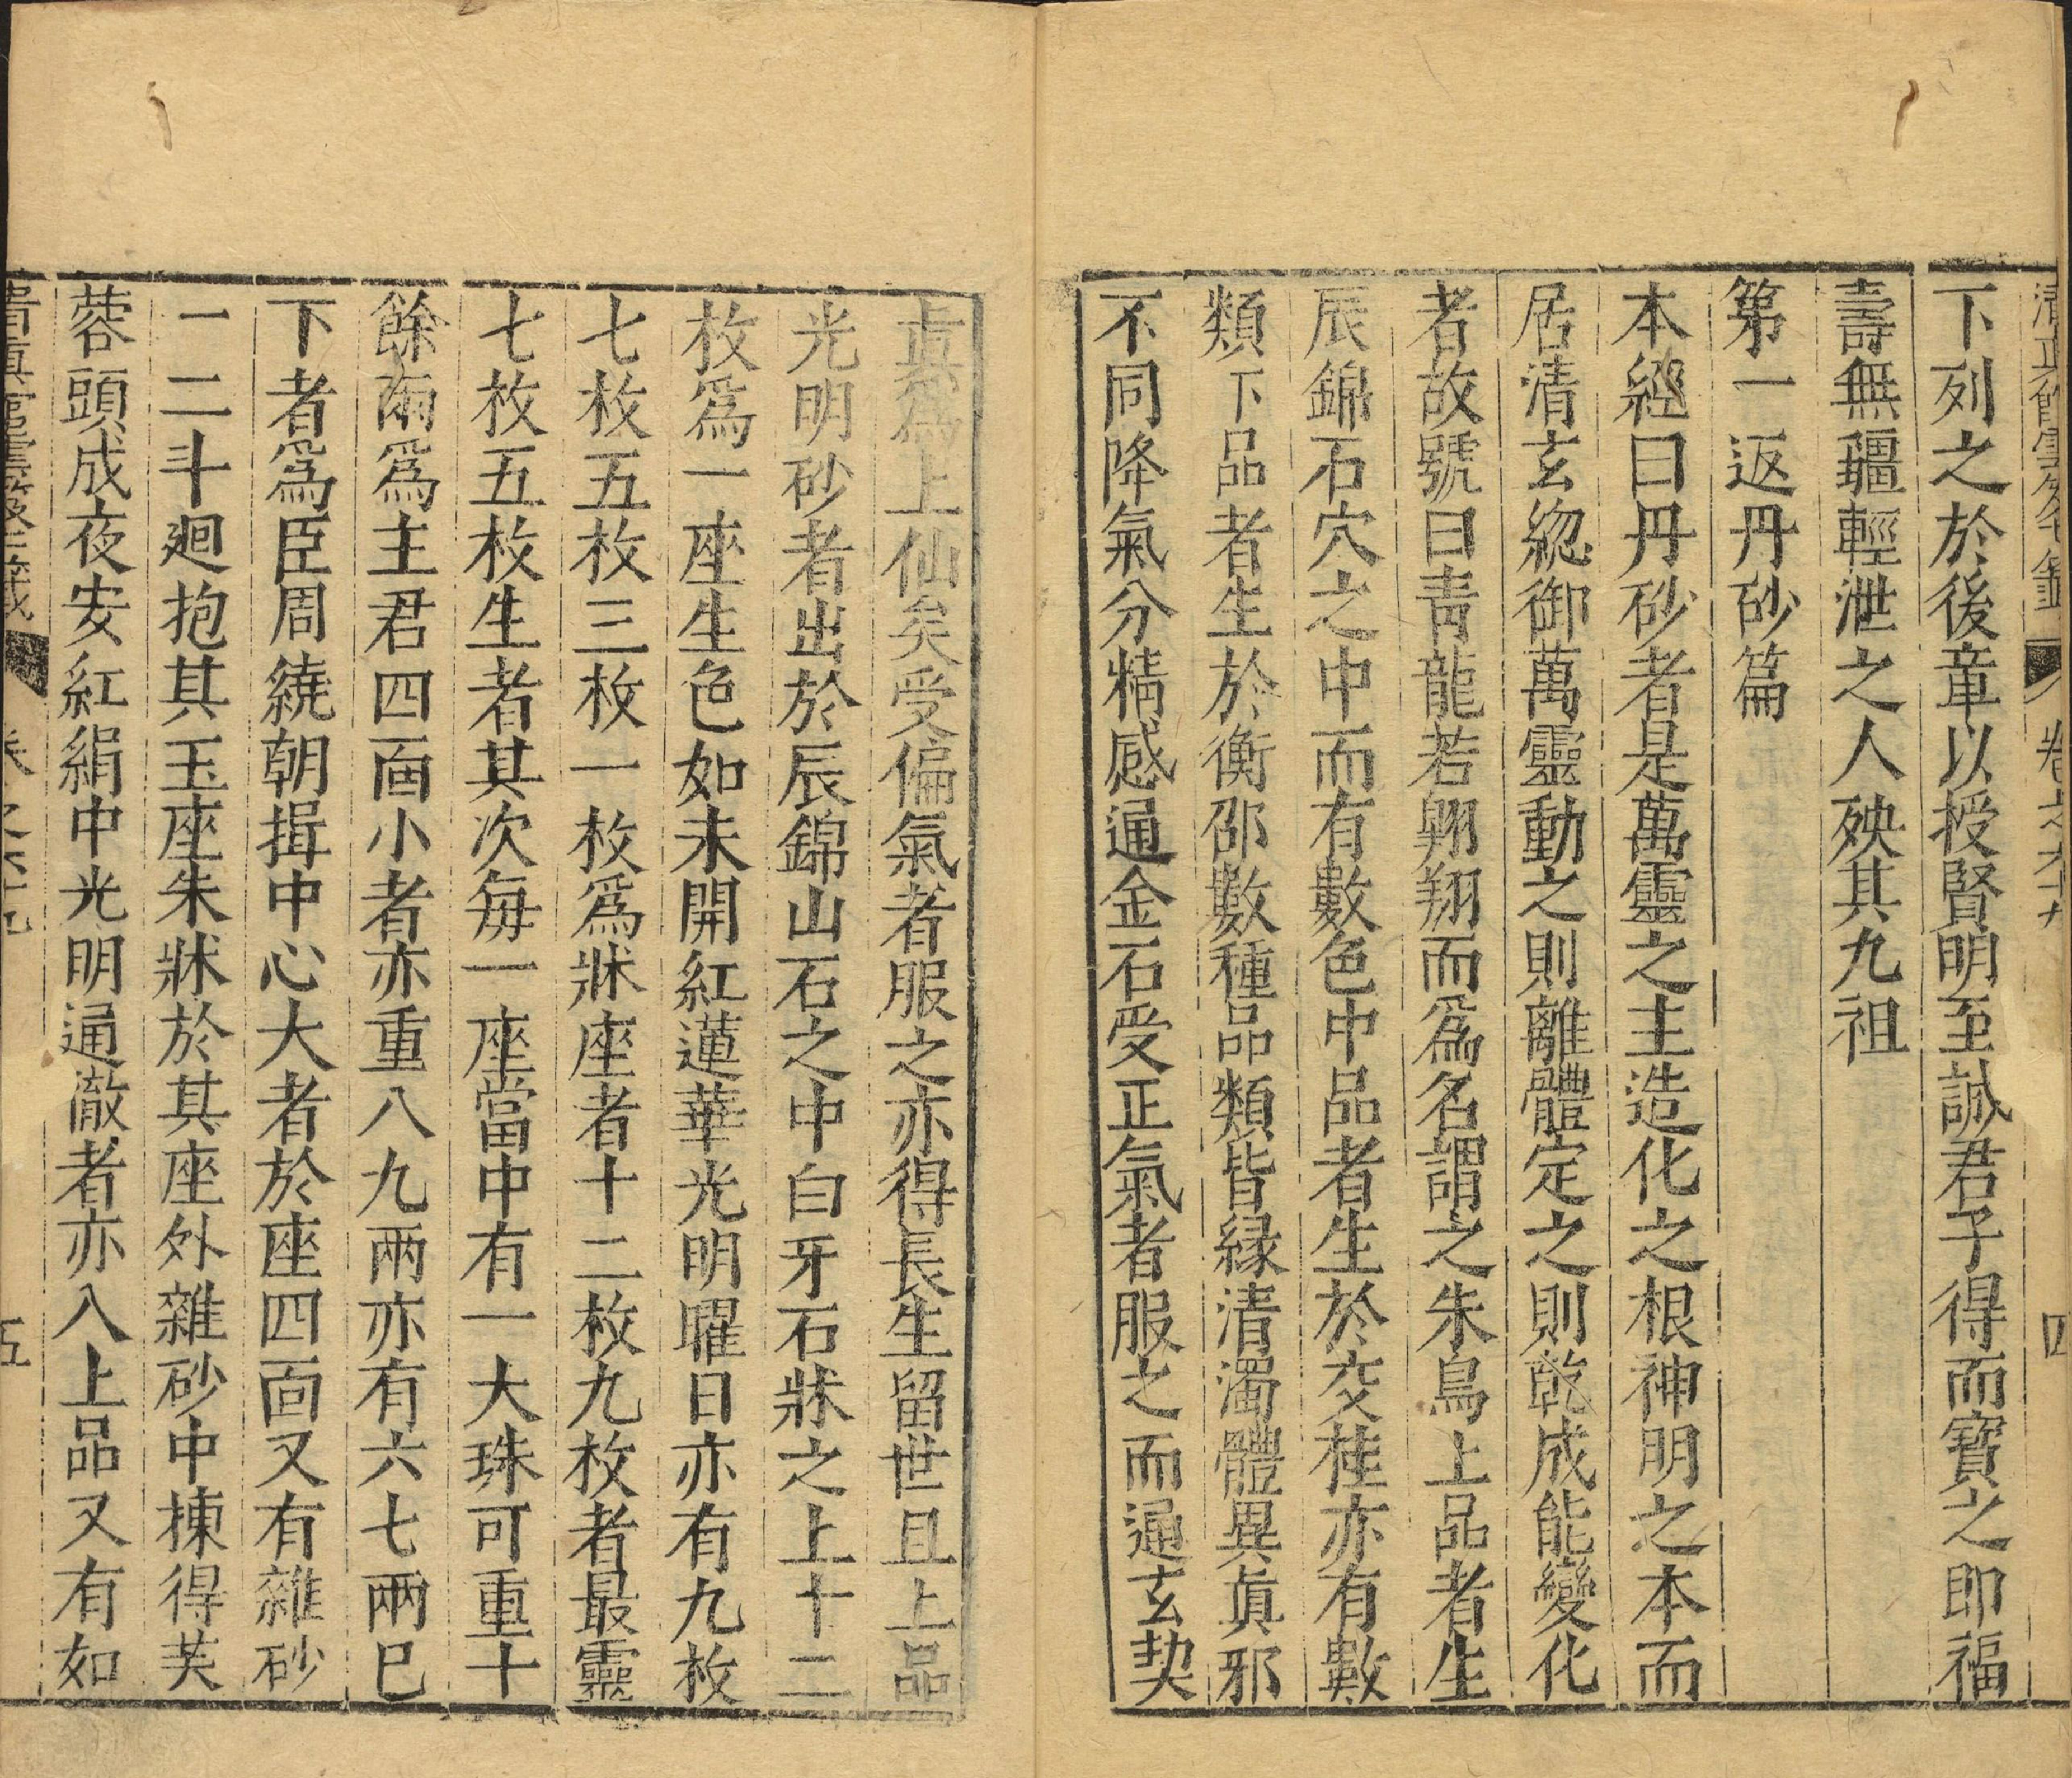 卷之六十九
四
下列之於後章以授賢明至誠君子得而寶之即福
壽無疆輕泄之人殃其九祖
第一返丹砂篇
本經曰丹砂者是萬靈之主造化之根神明之本而
居清玄緫御萬靈動之則離體定之則乾成能變化
者故號曰青龍若翱翔而爲名謂之朱鳥上品者生
辰錦石穴之中而有數色中品者生於交桂亦有數
類下品者生於衡邵數種品類皆縁清濁體異眞邪
不同降氣分精感通金石受正氣者服之而通玄契
眞爲上仙矣受偏氣者服之亦得長生留世且上品
光明砂者出於辰錦山石之中白牙石牀之上十二
枚爲一座生色如未開紅蓮華光明曜日亦有九枚
七枚五枚三枚一枚爲牀座者十二枚九枚者最靈
七枚五枚生者其次每一座當中有一大珠可重十
餘兩爲主君四面小者亦重八九兩亦有六七兩巳
下者爲臣周繞朝揖中心大者於座四面又有雜砂
一二斗廻抱其玉座朱牀於其座外雜砂中揀得芙
蓉頭成夜安紅絹中光明通澈者亦入上品又有如
五